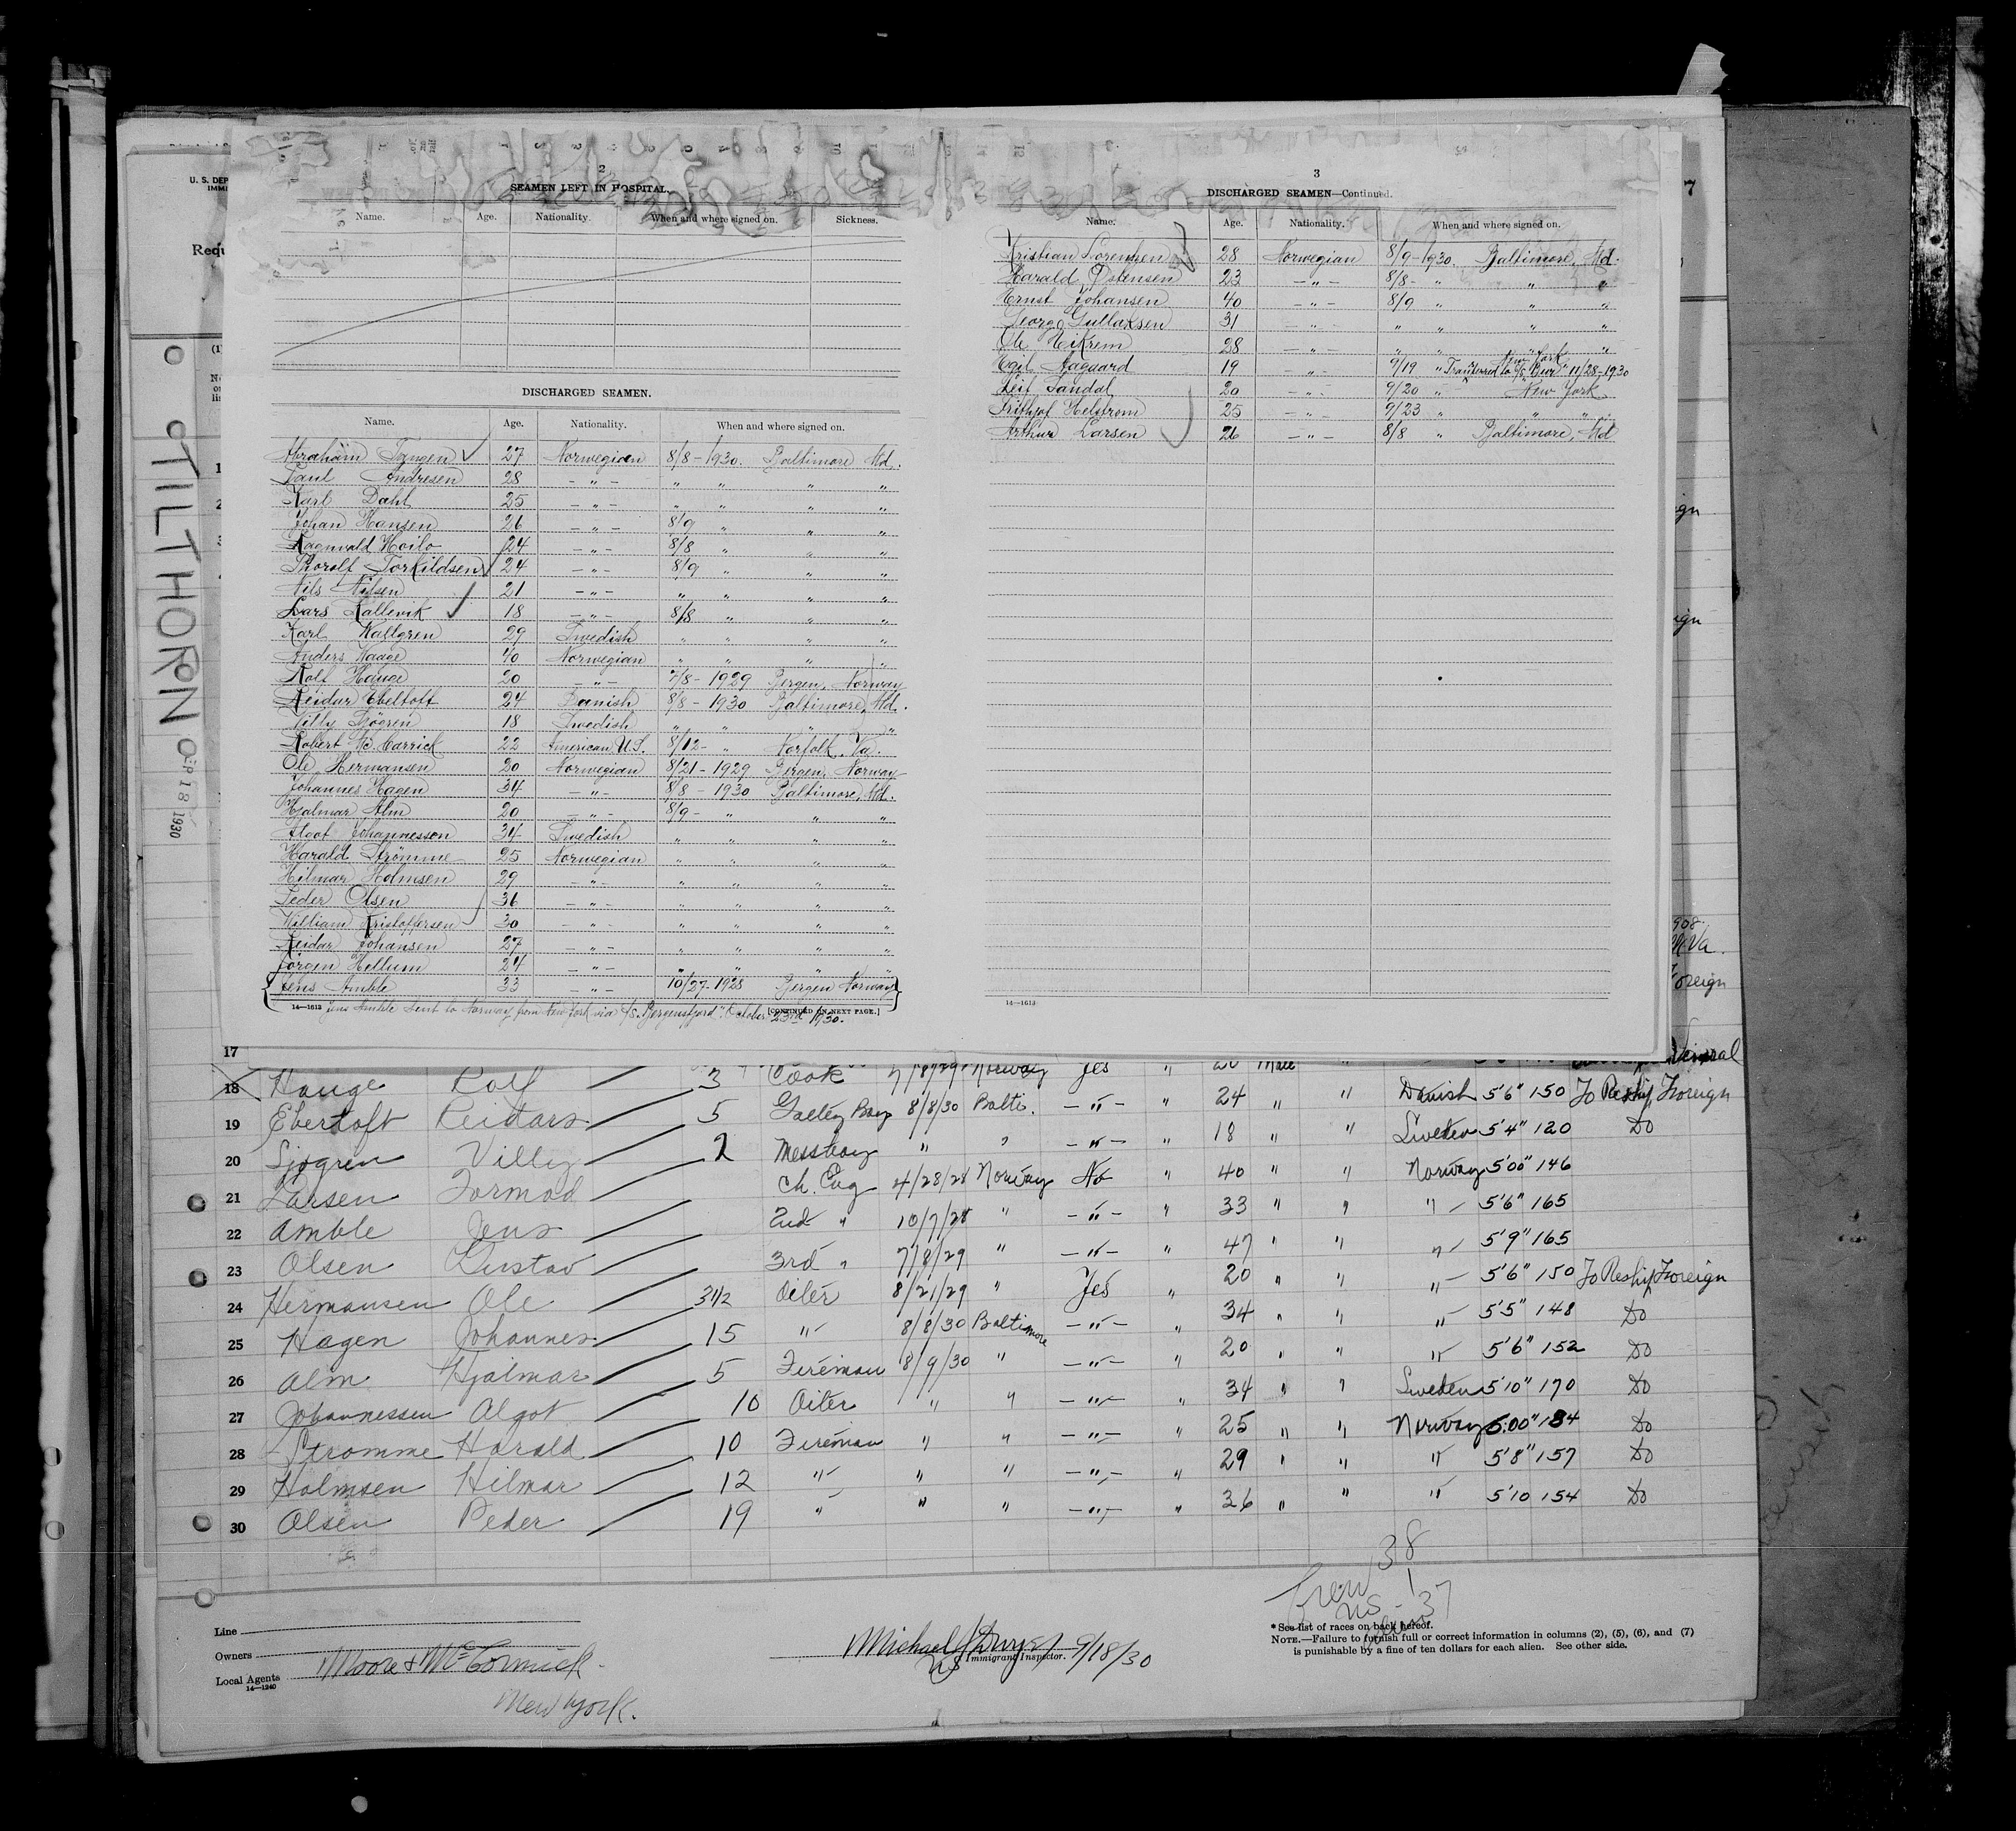 U. S. DEP
IMMI
Requ
TILTHORN
SEP 18 1930
2
SEAMEN LEFT IN HOSPITAL.
Name. Age. Nationality. When and where signed on. Sickness.
DISCHARGED SEAMEN.
Name. Age. Nationality. When and where signed on.
Abraham Tangen 27 Norwegian 8/8-1930. Baltimore Md.
Paul Andresen 28 -"- " " " "
Karl Dahl 25 -"- " " " "
Johan Hansen 26 -"- 8/9 " " "
Ragnvald Hoilo 24 -"- 8/8 " " "
Thoralf Torkildsen 24 -"- 8/9 " " "
Nils Nilsen 21 -"- " " " "
Lars Kallevik 18 -"- 8/8 " " "
Karl Kallgren 29 Swedish " " " "
Anders Haage 40 Norwegian " " " "
Rolf Hauge 20 -"- 7/8-1929 Bergen, Norway
Reidar Ebeltoft 24 Danish 8/8-1930 Baltimore, Md.
Villy Sjögren 18 Swedish " " " "
Robert B. Carrick 22 American U.S. 8/12- " Norfolk. Va.
Ole Hermansen 20 Norwegian 8/21-1929 Bergen, Norway
Johannes Hagen 34 -"- 8/8-1930 Baltimore, Md.
Hjalmar Alm 20 -"- 8/9- " " "
Algot Johannesson 34 Swedish " " " "
Harald Strömme 25 Norwegian " " " "
Hilmar Holmsen 29 -"- " " " "
Peder Olsen 36 -"- " " " "
William Kristoffersen 30 -"- " " " "
Reidar Johansen 27 -"- " " " "
Jörgen Hellum 24 -"- " " " "
Jens Amble 33 -"- 10/27-1928 Bergen Norway
14—1613 [CONTINUED ON NEXT PAGE.]
Jens Amble sent to Norway from New York via S/S. "Bergensfjord". October 23rd 1930.
3
DISCHARGED SEAMEN—Continued.
Name. Age. Nationality. When and where signed on.
Kristian Lorentsen 28 Norwegian 8/9-1930. Baltimore, Md.
Harald Östensen 23 -"- 8/8- " " "
Ernst Johansen 40 -"- 8/9 " " "
Georg Gullaksen 31 -"- " " " "
Ole Heikrem 28 -"- " " " "
Egil Aagaard 19 -"- 9/19 " New York Transferred to S/S 11/28-1930
Leif Sandal 20 -"- 9/20 " New York
Frithjof Helstrom 25 -"- 9/23 " " "
Arthur Larsen 26 -"- 8/8 " Baltimore, Md
14—1613
17
18 Hauge Rolf 3 Cook 7/8/29 Norway Yes " 20 Male "
19 Ebertoft Reidars 5 Galley Boy 8/8/30 Balti. -"- " 24 " " Danish 5'6" 150 To Reship Foreign
20 Sjogren Villy 2 Messboy " " -"- " 18 " " Sweden 5'4" 120 Do
21 Larsen Tormod Ch. Eng 4/28/28 Norway No " 40 " " Norway 5'00" 146
22 Amble Jens 2nd " 10/7/28 " -"- " 33 " " " 5'6" 165
23 Olsen Gustav 3rd " 7/8/29 " -"- " 47 " " " 5'9" 165
24 Hermansen Ole 3 1/2 Oiler 8/21/29 " Yes " 20 " " " 5'6" 150 To Reship Foreign
25 Hagen Johannes 15 " 8/8/30 Baltimore -"- " 34 " " " 5'5" 148 Do
26 Alm Hjalmar 5 Fireman 8/9/30 " -"- " 20 " " " 5'6" 152 Do
27 Johannessen Algot 10 Oiler " " -"- " 34 " " Sweden 5'10" 170 Do
28 Stromme Harald 10 Fireman " " -"- " 25 " " Norway 6'00" 184 Do
29 Holmsen Hilmar 12 " " " -"- " 29 " " " 5'8" 157 Do
30 Olsen Peder 19 " " " -"- " 36 " " " 5'10 154 Do
Crew 38
US - 1
37
Line
Owners
Local Agents Moore & McCormick
14—1240
New York.
Michael J Dwyer 9/18/30
US Immigrant Inspector.
* See list of races on back hereof.
NOTE.—Failure to furnish full or correct information in columns (2), (5), (6), and (7)
is punishable by a fine of ten dollars for each alien. See other side.